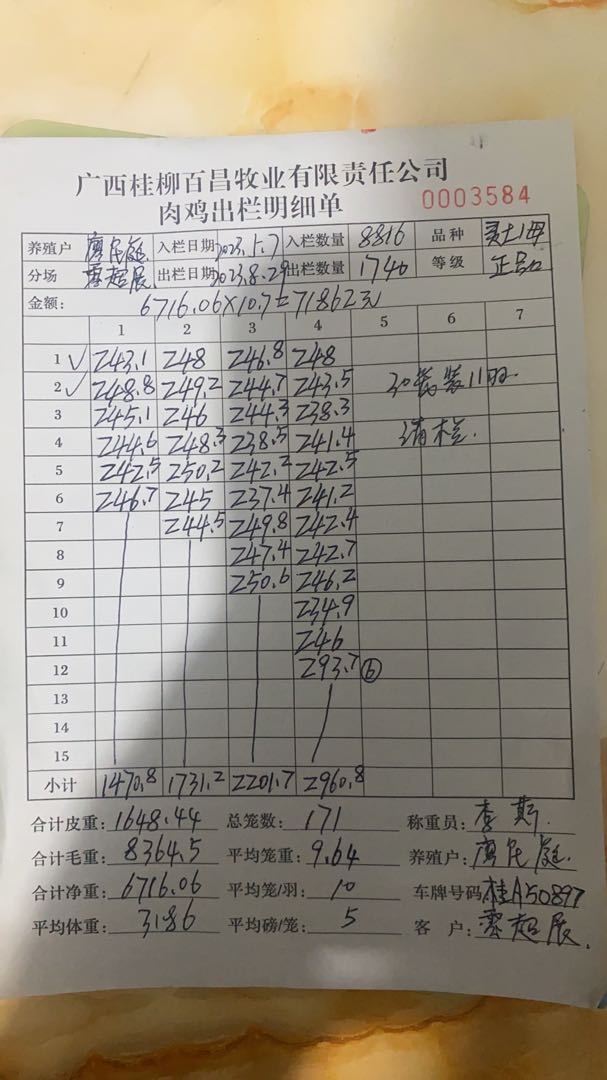 广西桂柳百昌牧业有限责任公司
肉鸡出栏明细单 0003584
养殖户 廖民庭 入栏日期 2023.5.7 入栏数量 8816 品种 灵土1母
分场 出栏日期 2023.8.29 出栏数量 1740 等级 正品
金额: 6716.06×10.7=71862元
1 2 3 4 5 6 7
1 √ 243.1 248 246.8 248
2 √ 248.8 249.2 244.7 243.5 30笼装11只
3 245.1 246 244.3 238.3
4 244.6 248.3 238.5 241.4 清栏.
5 242.5 250.2 242.2 242.5
6 246.7 245 237.4 241.2
7 244.5 249.8 242.4
8 247.4 242.7
9 250.6 246.2
10 234.9
11 246
12 293.7 ⑥
13
14
15
小计 1470.8 1731.2 2201.7 2960.8
合计皮重: 1648.44 总笼数: 171 称重员: 李斯
合计毛重: 8364.5 平均笼重: 9.64 养殖户: 廖民庭
合计净重: 6716.06 平均笼/羽: 10 车牌号码: 桂A50897
平均体重: 3.86 平均磅/笼: 5 客户: 超展